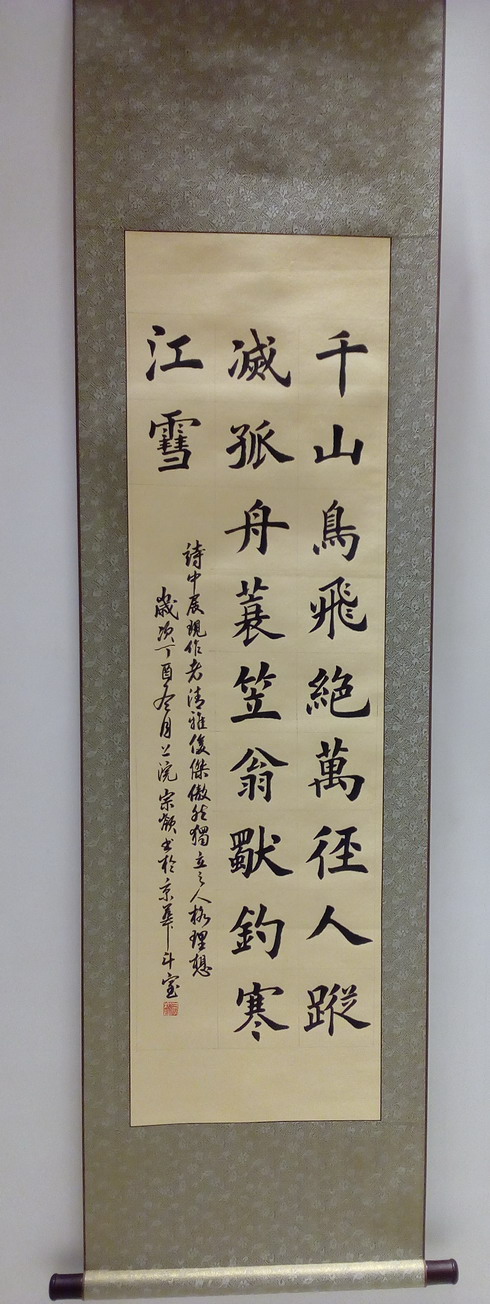 千山鳥飛絕萬徑人蹤
滅孤舟蓑笠翁獨釣寒
江雪
詩中展現作者清雅俊傑傲然獨立之人格理想
歲次丁酉冬月 院宗嶺書於京華斗室